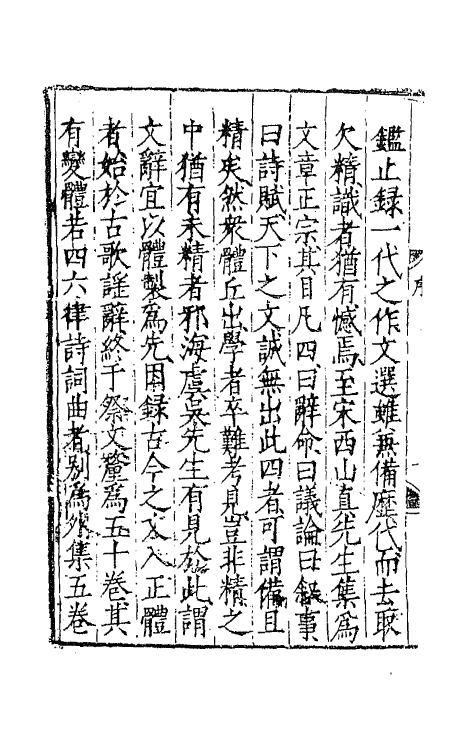 序
鑑止録一代之作文選雖兼備歷代而去取
欠精識者猶有憾焉至宋西山真先生集爲
文章正宗其目凡四曰辭命曰議論曰叙事
曰詩賦天下之文誠無出此四者可謂備且
精矣然衆體丘出學者卒難考見豈非精之
中猶有未精者邪海虞吳先生有見於此謂
文辭宜以體製爲先因録古今之文入正體
者始於古歌謡辭終于祭文釐爲五十卷其
有變體若四六律詩詞曲者别爲外集五卷